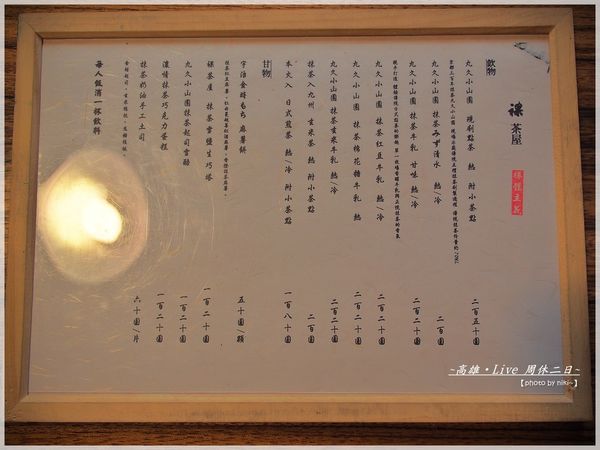 茶屋
飲物
丸久小山園 現刷點茶 熱 附小茶點 二百五十圓
丸久小山園 抹茶みず清水 熱/冷 二百圓
丸久小山園 抹茶牛乳 甘味 熱/冷 二百二十圓
丸久小山園 抹茶紅豆牛乳 熱/冷 二百二十圓
丸久小山園 抹茶棉花糖牛乳 熱 二百二十圓
丸久小山園 抹茶玄米牛乳 熱/冷 二百二十圓
抹茶入九州 玄米茶 熱 附小茶點 二百圓
本火入 日式煎茶 熱/冷 附小茶點 一百八十圓
甘物
宇治金時もち 麻薯餅 五十圓/顆
抹茶屋 抹茶雪鹽生巧塔 一百二十圓
丸久小山園抹茶起司雪酪 一百二十圓
濃情抹茶巧克力蛋糕 一百二十圓
抹茶奶油手工土司 六十圓/片
每人低消一杯飲料
~高雄·Live 周休二日~
【photo by niki~】